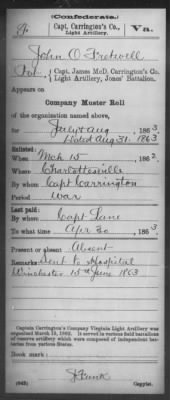 Confederate.
Capt. Carrington's Co., Va.
Light Artillery.
John O Fretwell
Capt. James McD. Carrington's Co.
Light Artillery, Jones' Battalion.
Appears on
Company Muster Roll
of the organization named above,
for July & Aug, 1863
Dated Aug 31, 1863
Enlisted:
When Mch 15, 1862.
Where Charlottesville
By whom Capt Carrington
Period War
Last paid:
By whom Capt Lane
To what time Apr 30, 1863.
Present or absent Absent
Remarks: Sent to Hospital
Winchester 15th June 1863
Captain Carrington's Company Virginia Light Artillery was
organized March 15, 1862. It served in various field battalions
of reserve artillery which were composed of independent bat-
teries from various States.
Book mark:
(642) Copyist.